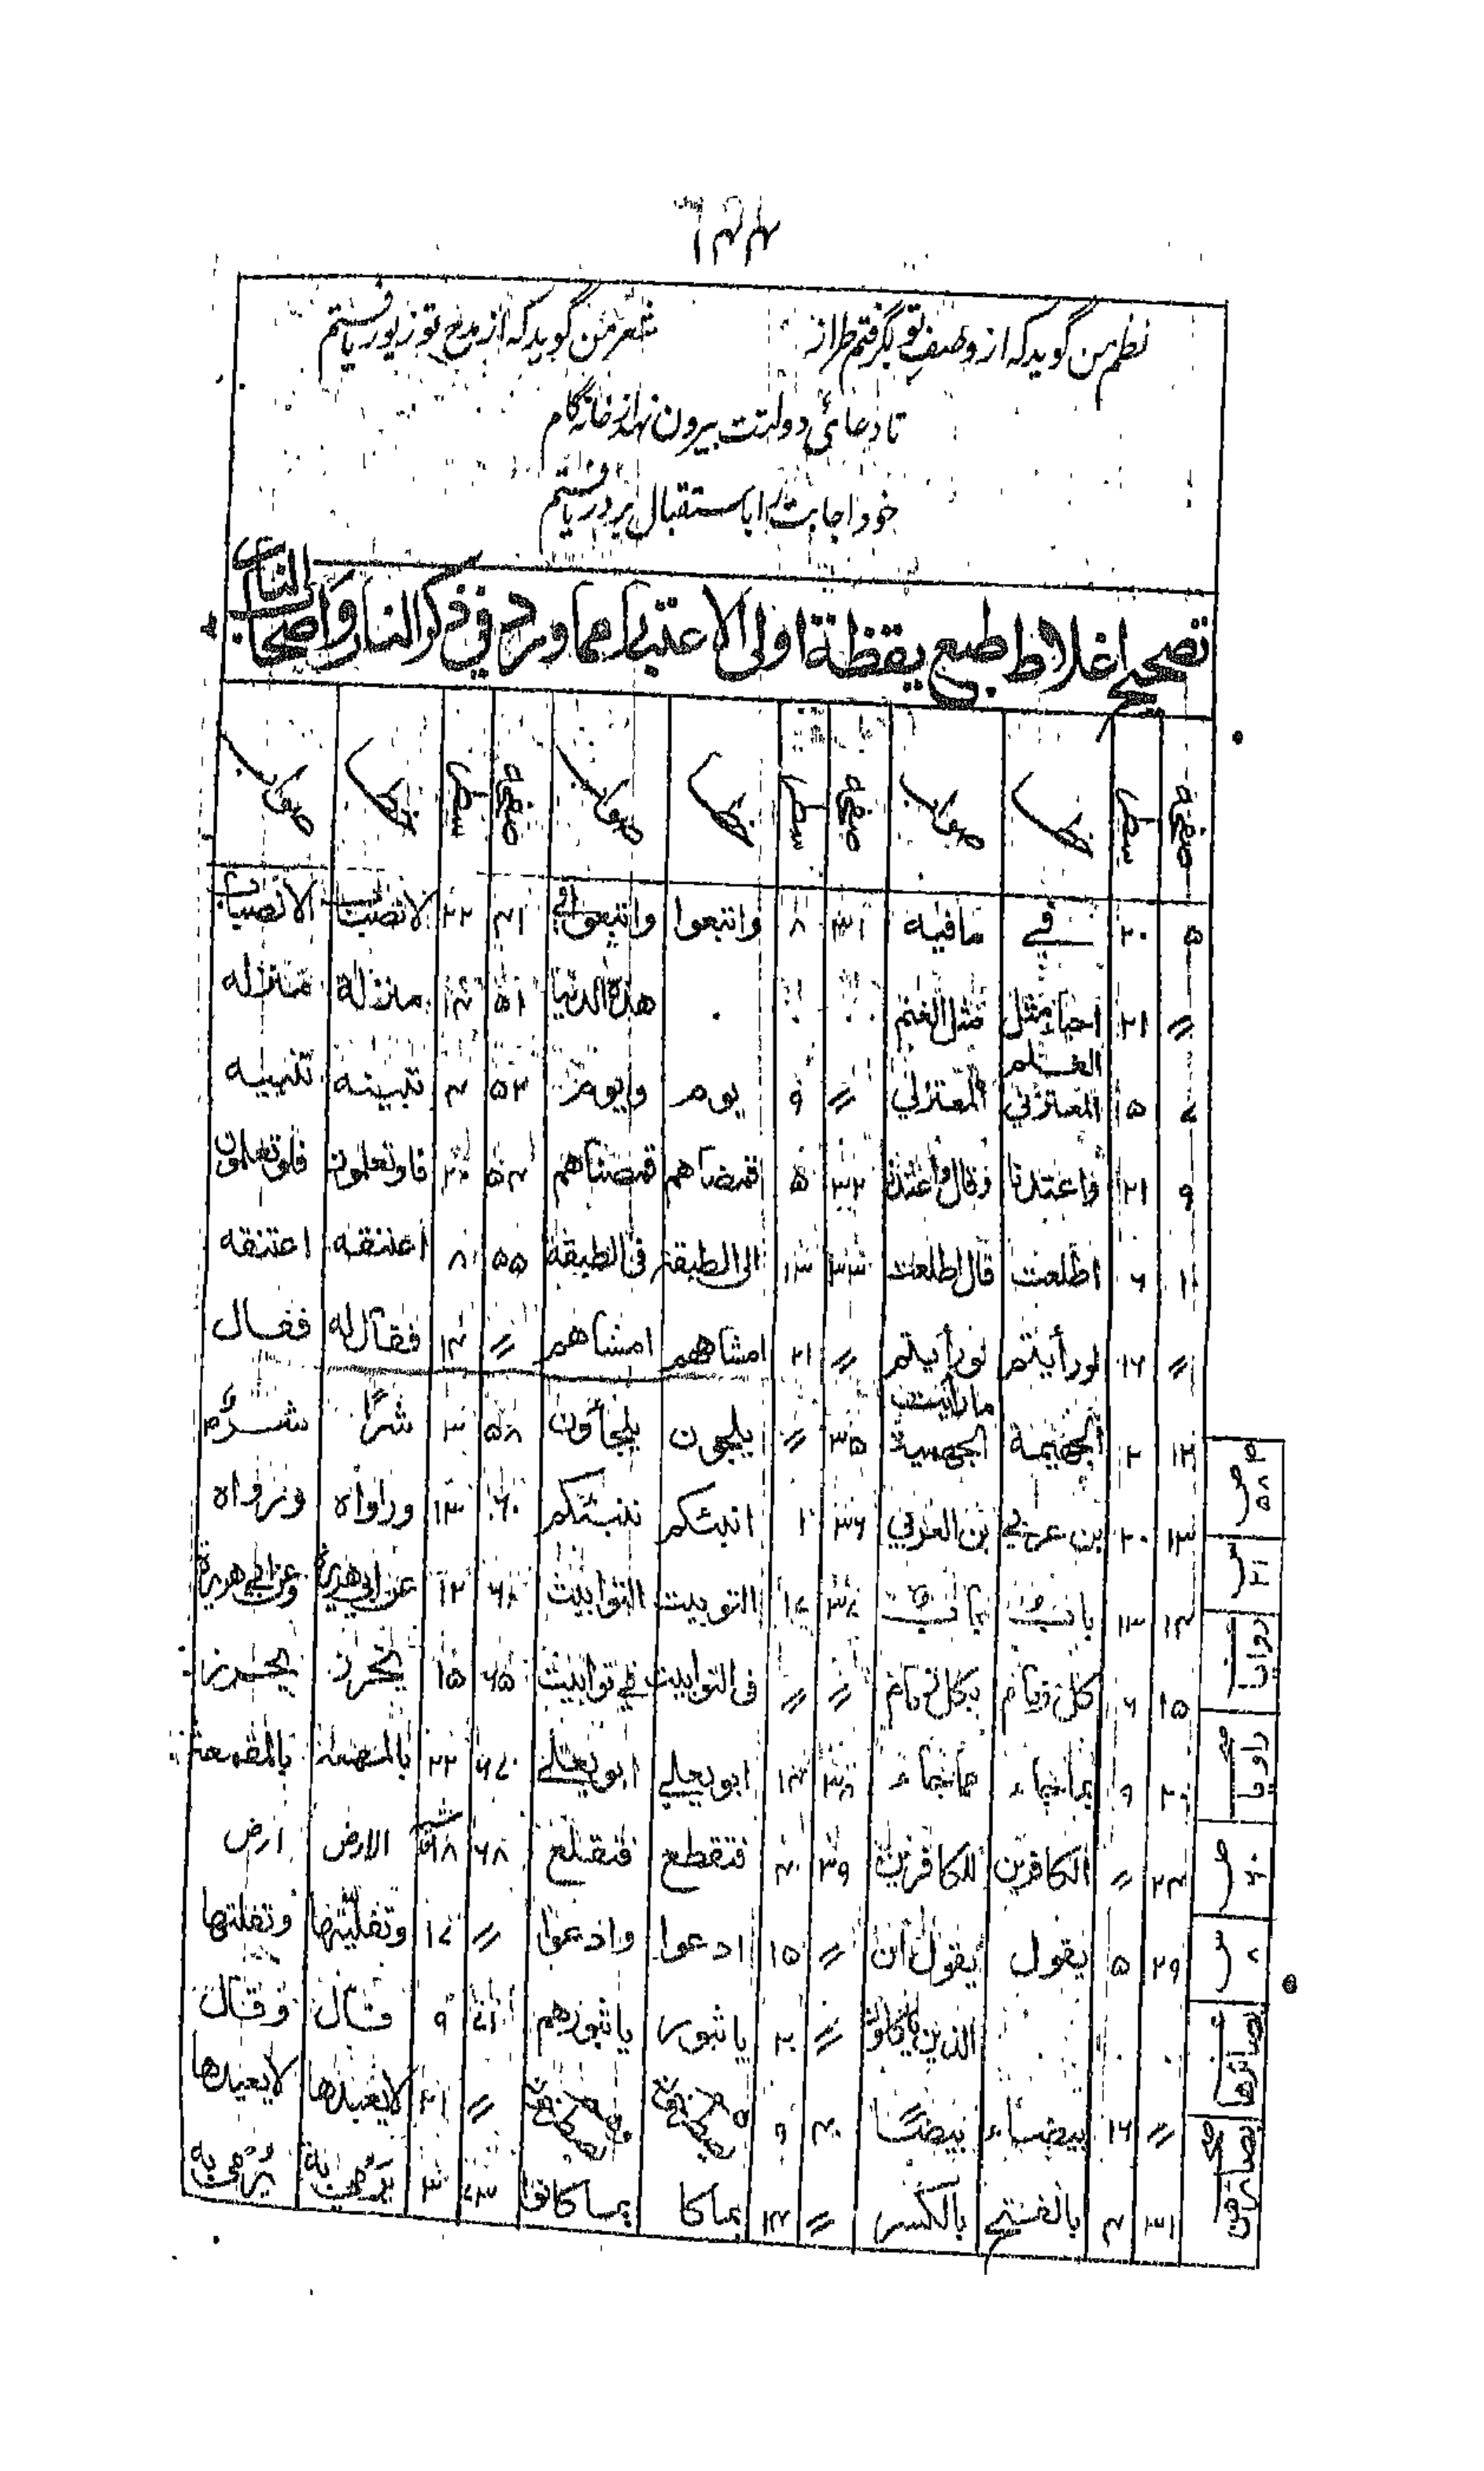 ۱۴۴
نظم من گوید که از وصف تو بگرفتم طراز شعر من گوید که از مدح تو زیور یافتم
تا دعائی دولتت بیرون نهاد از خانه گام
خود اجابت را باستقبال بر در یافتم
تصحیح اغلاط طبع یقظة اولی الاعتبار مما ورد فی ذکر النار واصحاب النار
صفحه سطر خطا صواب صفحه سطر خطا صواب صفحه سطر خطا صواب
۵ ۲۰ فے مافیه ۳۱ ۸ واتبعوا واتبعوا فی ۴۱ ۲۲ الانصبب الانصباب
〃 ۲۱ احیاء مثل الغنم مثل الغنم هذه الدنیا ۵۱ ۱۴ منزلة منزله
۷ ۱۵ المعتزنی المعتزلی 〃 ۹ یوم وایوم ۵۳ ۴ تبینه تنبیه
۹ ۲۱ فاعتدنا وقال واعتدنا ۳۲ ۵ قمصاهم قمصناهم ۵۴ ۲۰ فاوتعلمون فلوتعلمون
۱۱ ۶ اطلعت قال اطلعت ۳۳ ۱۳ الی الطبقة فی الطبقة ۵۵ ۸ اعلنقه اعتنقه
〃 ۱۶ لورأیتم لورأیتم مارأیت 〃 ۲۱ امشاههم امشاهم 〃 ۱۴ فقال له فقال
۱۲ ۲ الجهیمة الجهمیة ۳۵ 〃 یلجون یلجأون ۵۸ ۳ شرًا شرٌ
۱۳ ۲۰ بن عربی بن العربی ۳۶ ۱ انبئکم ننبئکم ۶۰ ۱۳ وراواه ورواه
۱۴ ۱۳ باب باب ۳۷ ۱۷ التوبیت التوابیت ۶۰ ۱۲ عن ابی هریرة وعن ابی هریرة
۱۵ ۶ کل زمان بکل زمان 〃 〃 فی التوابیت فی توابیت ۶۵ ۱۵ یحرز یحرز
۲۰ ۹ بماشاء مماشاء ۳۸ ۱۴ ابویعلی ابویعلی ۶۷ ۲۲ بالمقمعة
۲۴ 〃 الکافرین للکافرین ۳۹ ۴ فتقطع فتقلع ۶۸ ۱۸ الارض ارض
۲۹ ۵ یقول یقول ان الذین یاکلون 〃 ۱۵ ادعوا وادعوا 〃 ۱۷ وتفلیتها وتفلتها
〃 ۲ یاثبور یاثبورهم ۷۱ ۹ قال وقال
〃 ۱۶ بیضاء بیضًا ۴۰ ۹ 〃 ۲۱ لایعبدها لایعیدها
۳۱ ۴ بالفتح بالکسر 〃 ۱۲ بماکا بماکانوا ۷۳ ۳ یرمی به یرمی به
ص ۵۸
س ۲۱
روایا
ص ۶۰
س ۸